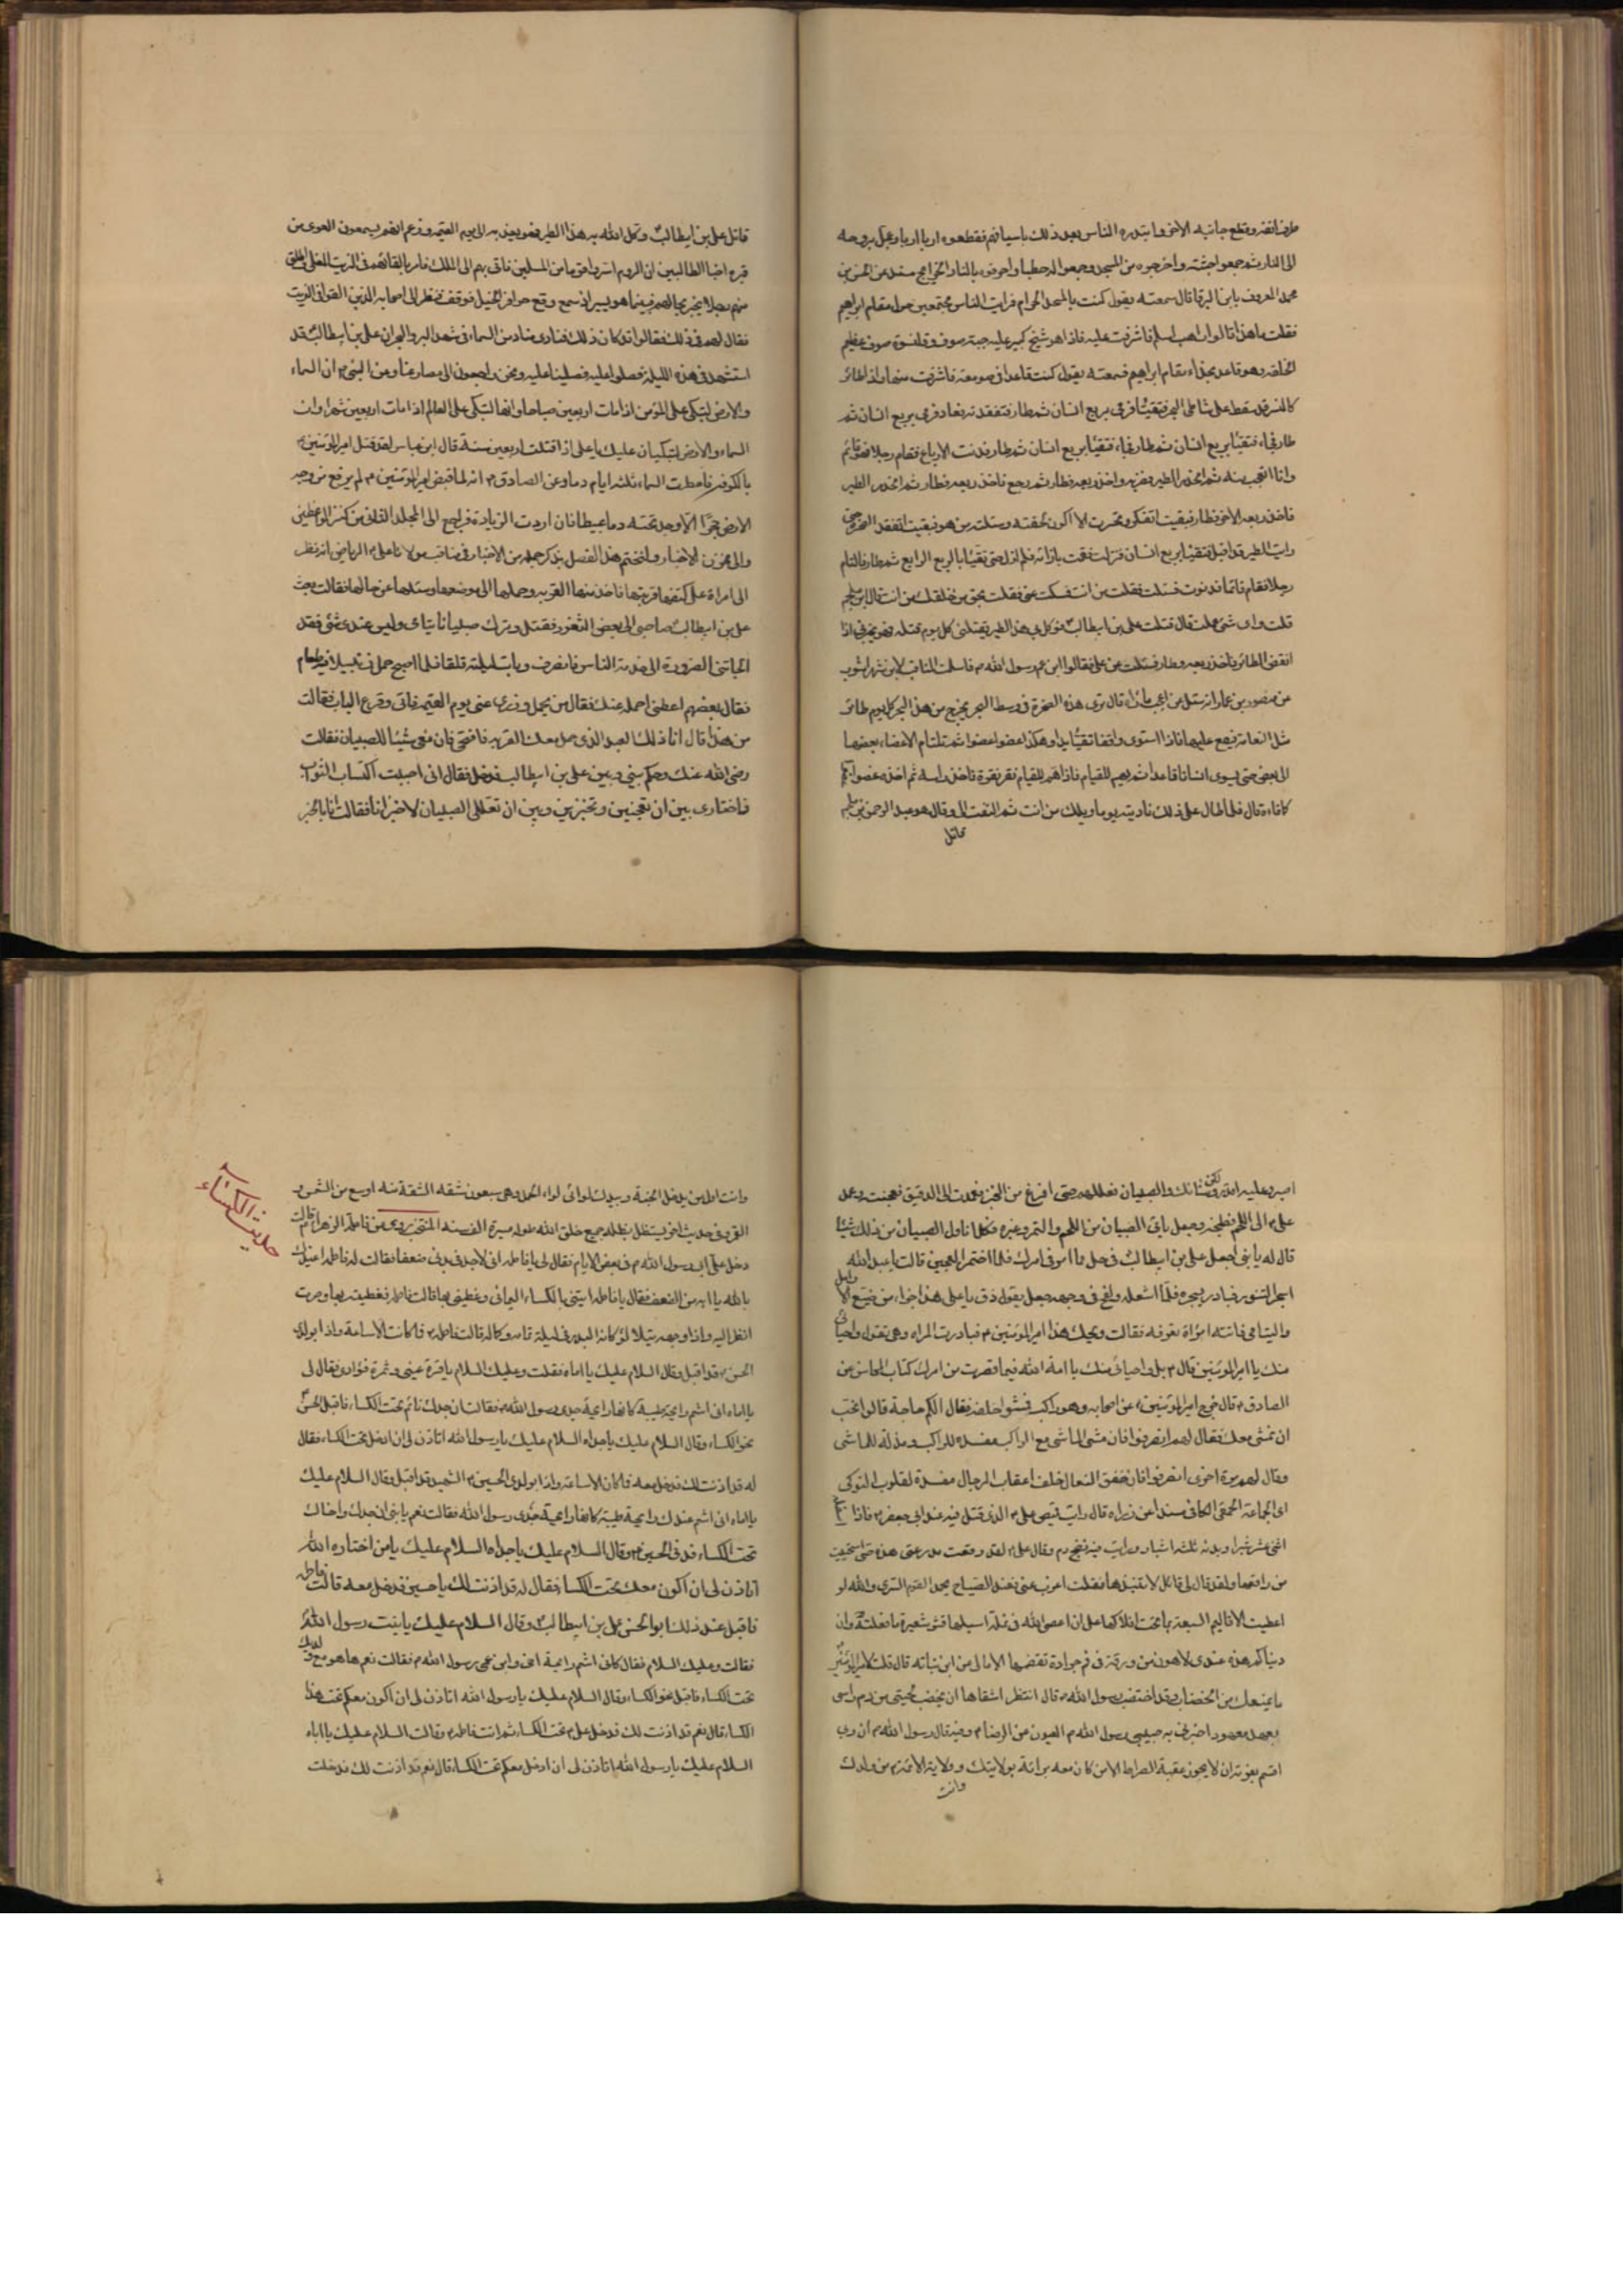 طرف انفه وقطع جانبه الاخر وابتدره الناس بعد ذلك باسيافهم فقطعوه اربا اربا وعجل بروحه
الى النار ثم جمعوا جثته واخرجوه من المسجد وجمعوا له حطبا واحرقوه بالنار الخرايج مسند عن الحسن بن
محمد المعروف بابن الرقا قال سمعته يقول كنت بالمسجد الحرام فرايت الناس مجتمعين حول مقام ابراهيم
فقلت ما هذا قالوا راهب اسلم فاشرفت عليه فاذا هو شيخ كبير عليه جبة صوف وقلنسوة صوف عظيم
الخلقة وهو قاعد بحذاء مقام ابراهيم فسمعته يقول كنت قاعدا في صومعة فاشرفت منها واذا طائر
كالنسر قد سقط على شاطئ البحر فتقيأ فرمى بربع انسان ثم طار فتفقدته فعاد فرمى بربع انسان ثم
طار فجاء فتقيأ بربع انسان ثم طار فجاء فتقيأ بربع انسان ثم طار فدنت الارباع فقام رجلا فهو قائم
وانا اتعجب منه ثم انحدر الطير فضربه واخذ ربعه فطار ثم رجع فاخذ ربعه فطار ثم انحدر الطير
فاخذ ربعه الاخر فطار فبقيت اتفكر وتحسرت الا اكون لحقته وسئلته من هو فبقيت اتفقد الصخرة حتى
رايت الطير قد اقبل فتقيأ بربع انسان فنزلت فقمت بازائه فلم ازل حتى تقيأ بالربع الرابع ثم طار فالتام
رجلا فقام قائما فدنوت فسئلت فقلت من انت فسكت عني فقلت بحق من خلقك من انت قال ابن ملجم
قلت واي شئ عملت قال قتلت علي بن ابيطالب فوكل بي هذا الطير يقتلني كل يوم قتلة فهو يخبرني اذا
انقض الطائر فاخذ ربعه وطار فسئلت عن علي فقالوا ابن عم رسول الله م فاسلمت المناقب لابن شهراشوب
عن منصور بن عمار انه سئل عن اعجب ما راه قال ترى هذه الصخرة في وسط البحر يخرج من هذا البحر كل يوم طائر
مثل النعامة فيقع عليها فاذا استوى واقفا تقيأ يدا وهكذا عضوا عضوا ثم تلتام الاعضاء بعضها
الى بعض حتى يستوى انسانا قاعدا ثم يهم للقيام فاذا هم للقيام نقره نقرة فاخذ راسه ثم اخذه عضوا عضوا
كما قاءه قال فلما طال على ذلك ناديته يوما ويلك من انت ثم التفت الى وقال هو عبد الرحمن بن ملجم
قاتل
قاتل علي بن ابيطالب وكل الله به هذا الطير فهو يعذبه الى يوم القيمة وزعم انهم يسمعون العوى من
قبره اخبار الطالبيين ان الروم اسروا قوما من المسلمين فاتى بهم الى الملك
نقال لهم في ذلك فقالوا قد كان ذلك فنادى مناد من السماء في شهداء البر والبحر ان علي بن ابيطالب قد
استشهد في هذه الليلة فصلوا عليه فصلينا عليه ونحن راجعون الى مصارعنا وعن النبي م ان السماء
والارض لتبكى على المؤمن اذا مات اربعين صباحا وانها لتبكى على العالم اذا مات اربعين شهرا وان
السماء والارض لتبكيان عليك يا على اذا قتلت اربعين سنة قال ابن عباس لقد قتل امير المؤمنين
بالكوفة فامطرت السماء ثلثة ايام دما وعن الصادق م انه لما قبض امير المؤمنين م لم يرفع من وجه
الارض حجرا الا وجد تحته دما عبيطا فان اردت الزيادة فراجع الى المجلد الثاني من كنز الواعظين
والى مخزن الاخبار ولنختم هذا الفصل بذكر جملة من الاخبار في مناقب مولانا على م الرياض انه نظر
الى امراة على كتفها قربة ماء فاخذ منها القربة وحملها الى موضعها وسئلها عن حالها فقالت بعث
علي بن ابيطالب صاحبي الى بعض الثغور فقتل وترك صبيانا يتامى وليس عندى شئ فقد
الجأتني الضرورة الى خدمة الناس فانصرف وبات ليلته قلقا فلما اصبح حمل زنبيلا فيه طعام
فقال بعضهم اعطني احمله عنك فقال من يحمل وزرى عني يوم القيمة فاتى وقرع الباب فقالت
من هذا قال انا ذلك العبد الذى حمل معك القربة فافتحي فان معي شيئا للصبيان فقالت
رضى الله عنك وحكم بيني وبين علي بن ابيطالب فدخل فقال اني احببت اكتساب الثواب
فاختارى بين ان تعجنين وتخبزين وبين ان تعللى الصبيان لاخبز انا فقالت انا بالخبز
ابصر وعليه اقدر ولكن شانك والصبيان فعللهم حتى افرغ من الخبز فعمدت الى الدقيق فعجنت وعمد
على م الى اللحم فطبخه وجعل يلقم الصبيان من اللحم والتمر وغيره فكلما ناول الصبيان من ذلك شيئا
قال له يا بني اجعل علي بن ابيطالب في حل مما امر في امرك فلما اختمر العجين قالت يا عبد الله
اسجر التنور فبادر بسجره فلما اشعله ولفح في وجهه جعل يقول ذق يا على هذا جزاء من ضيع الارامل
واليتامى فاتته امراة تعرفه فقالت ويحك هذا امير المؤمنين م فبادرت المراه وهي تقول واحيائي
منك يا امير المؤمنين قال م بل واحيائي منك يا امة الله فيما قصرت من امرك كتاب المحاسن عن
الصادق م قال خرج امير المؤمنين م على اصحابه وهو راكب فمشوا خلفه فقال الكم حاجة قالوا نحب
ان نمشى معك فقال لهم انصرفوا فان مشى الماشى مع الراكب مفسدة للراكب ومذلة للماشى
وقال لهم مرة اخرى انصرفوا فان خفق النعال خلف اعقاب الرجال مفسدة لقلوب النوكى
اى الجماعة الحمقى الكافى مسندا عن زرارة قال رايت قميص على م الذى قتل فيه عند ابي جعفر م فاذا
اثنى عشر شبرا وبدنه ثلثة اشبار ورايت فيه نضح دم وقال على م لقد رقعت مدرعتي هذه حتى استحييت
من راقعها ولقد قال لي قائل الا تنبذها فقلت اعزب عني فعند الصباح يحمد القوم السرى والله لو
اعطيت الاقاليم السبعة بما تحت افلاكها على ان اعصى الله في نملة اسلبها قشر شعيرة ما فعلته وان
دنياكم هذه عندى لاهون من ورقة في فم جرادة تقضمها الامالي عن ابن نباته قال قلت لامير المؤمنين
ما يمنعك من الخضاب وقد اختضب رسول الله م قال انتظر اشقاها ان يخضب لحيتي من دم راسى
بعهد معهود اخبرني به حبيبي رسول الله م العيون عن الرضا م وفيه قال رسول الله م ان ربي
اقسم بعزته ان لا يجوز عقبة الصراط الا من كان معه براءة بولايتك وولاية الائمة من ولدك
وانت
وانت اول من يدخل الجنة وبيدك لوائي لواء الحمد وهي سبعون شقه الشقة منه اوسع من الشمس و
القمر وفي حديث اخر يستظل بظله جميع خلق الله طوله مسيرة الف سنة المنتخب روى عن فاطمة الزهراء قالت
دخل علي ابي رسول الله م في بعض الايام فقال لي يا فاطمه اني لاجد في بدني ضعفا فقالت له فاطمه اعيذك
بالله يا ابه من الضعف فقال يا فاطمه ايتيني بالكساء اليماني وغطيني به قالت فاطمه فغطيته به وصرت
انظر اليه واذا وجهه يتلالؤ كانه البدر في ليلة تمامه وكماله قالت فاطمه م فما كانت الا ساعة واذا بولدى
الحسن م قد اقبل وقال السلام عليك يا اماه فقلت وعليك السلام يا قرة عيني وثمرة فؤادى فقال لى
يا اماه اني اشم رايحة طيبة كانها رايحة جدى رسول الله م فقالت ان جدك نائم تحت الكساء فاقبل الحسن
نحو الكساء وقال السلام عليك يا جداه السلام عليك يا رسول الله اتاذن لى ان ادخل تحت الكساء فقال
له قد اذنت لك فدخل معه فما كان الا ساعة واذا بولدى الحسين م الشهيد قد اقبل وقال السلام عليك
يا اماه اني اشم عندك رايحة طيبة كانها رايحة جدى رسول الله فقالت نعم يا بني ان جدك واخاك
تحت الكساء فدنى الحسين م وقال السلام عليك يا جداه السلام عليك يا من اختاره الله
اتاذن لى ان اكون معك تحت الكساء فقال له قد اذنت لك يا حسين فدخل معه قالت فاطمه
فاقبل عند ذلك ابو الحسن علي بن ابيطالب وقال السلام عليك يا بنت رسول الله
فقالت وعليك السلام فقال كاني اشم رايحة اخي وابن عمي رسول الله م فقالت نعم ها هو مع ولديك
تحت الكساء فاقبل نحو الكساء وقال السلام عليك يا رسول الله اتاذن لى ان اكون معكم تحت هذا
الكساء قال نعم قد اذنت لك فدخل علي م تحت الكساء ثم اتت فاطمه م وقالت السلام عليك يا اباه
السلام عليك يا رسول الله اتاذن لى ان ادخل معكم تحت الكساء قال نعم قد اذنت لك فدخلت
حديث الكساء